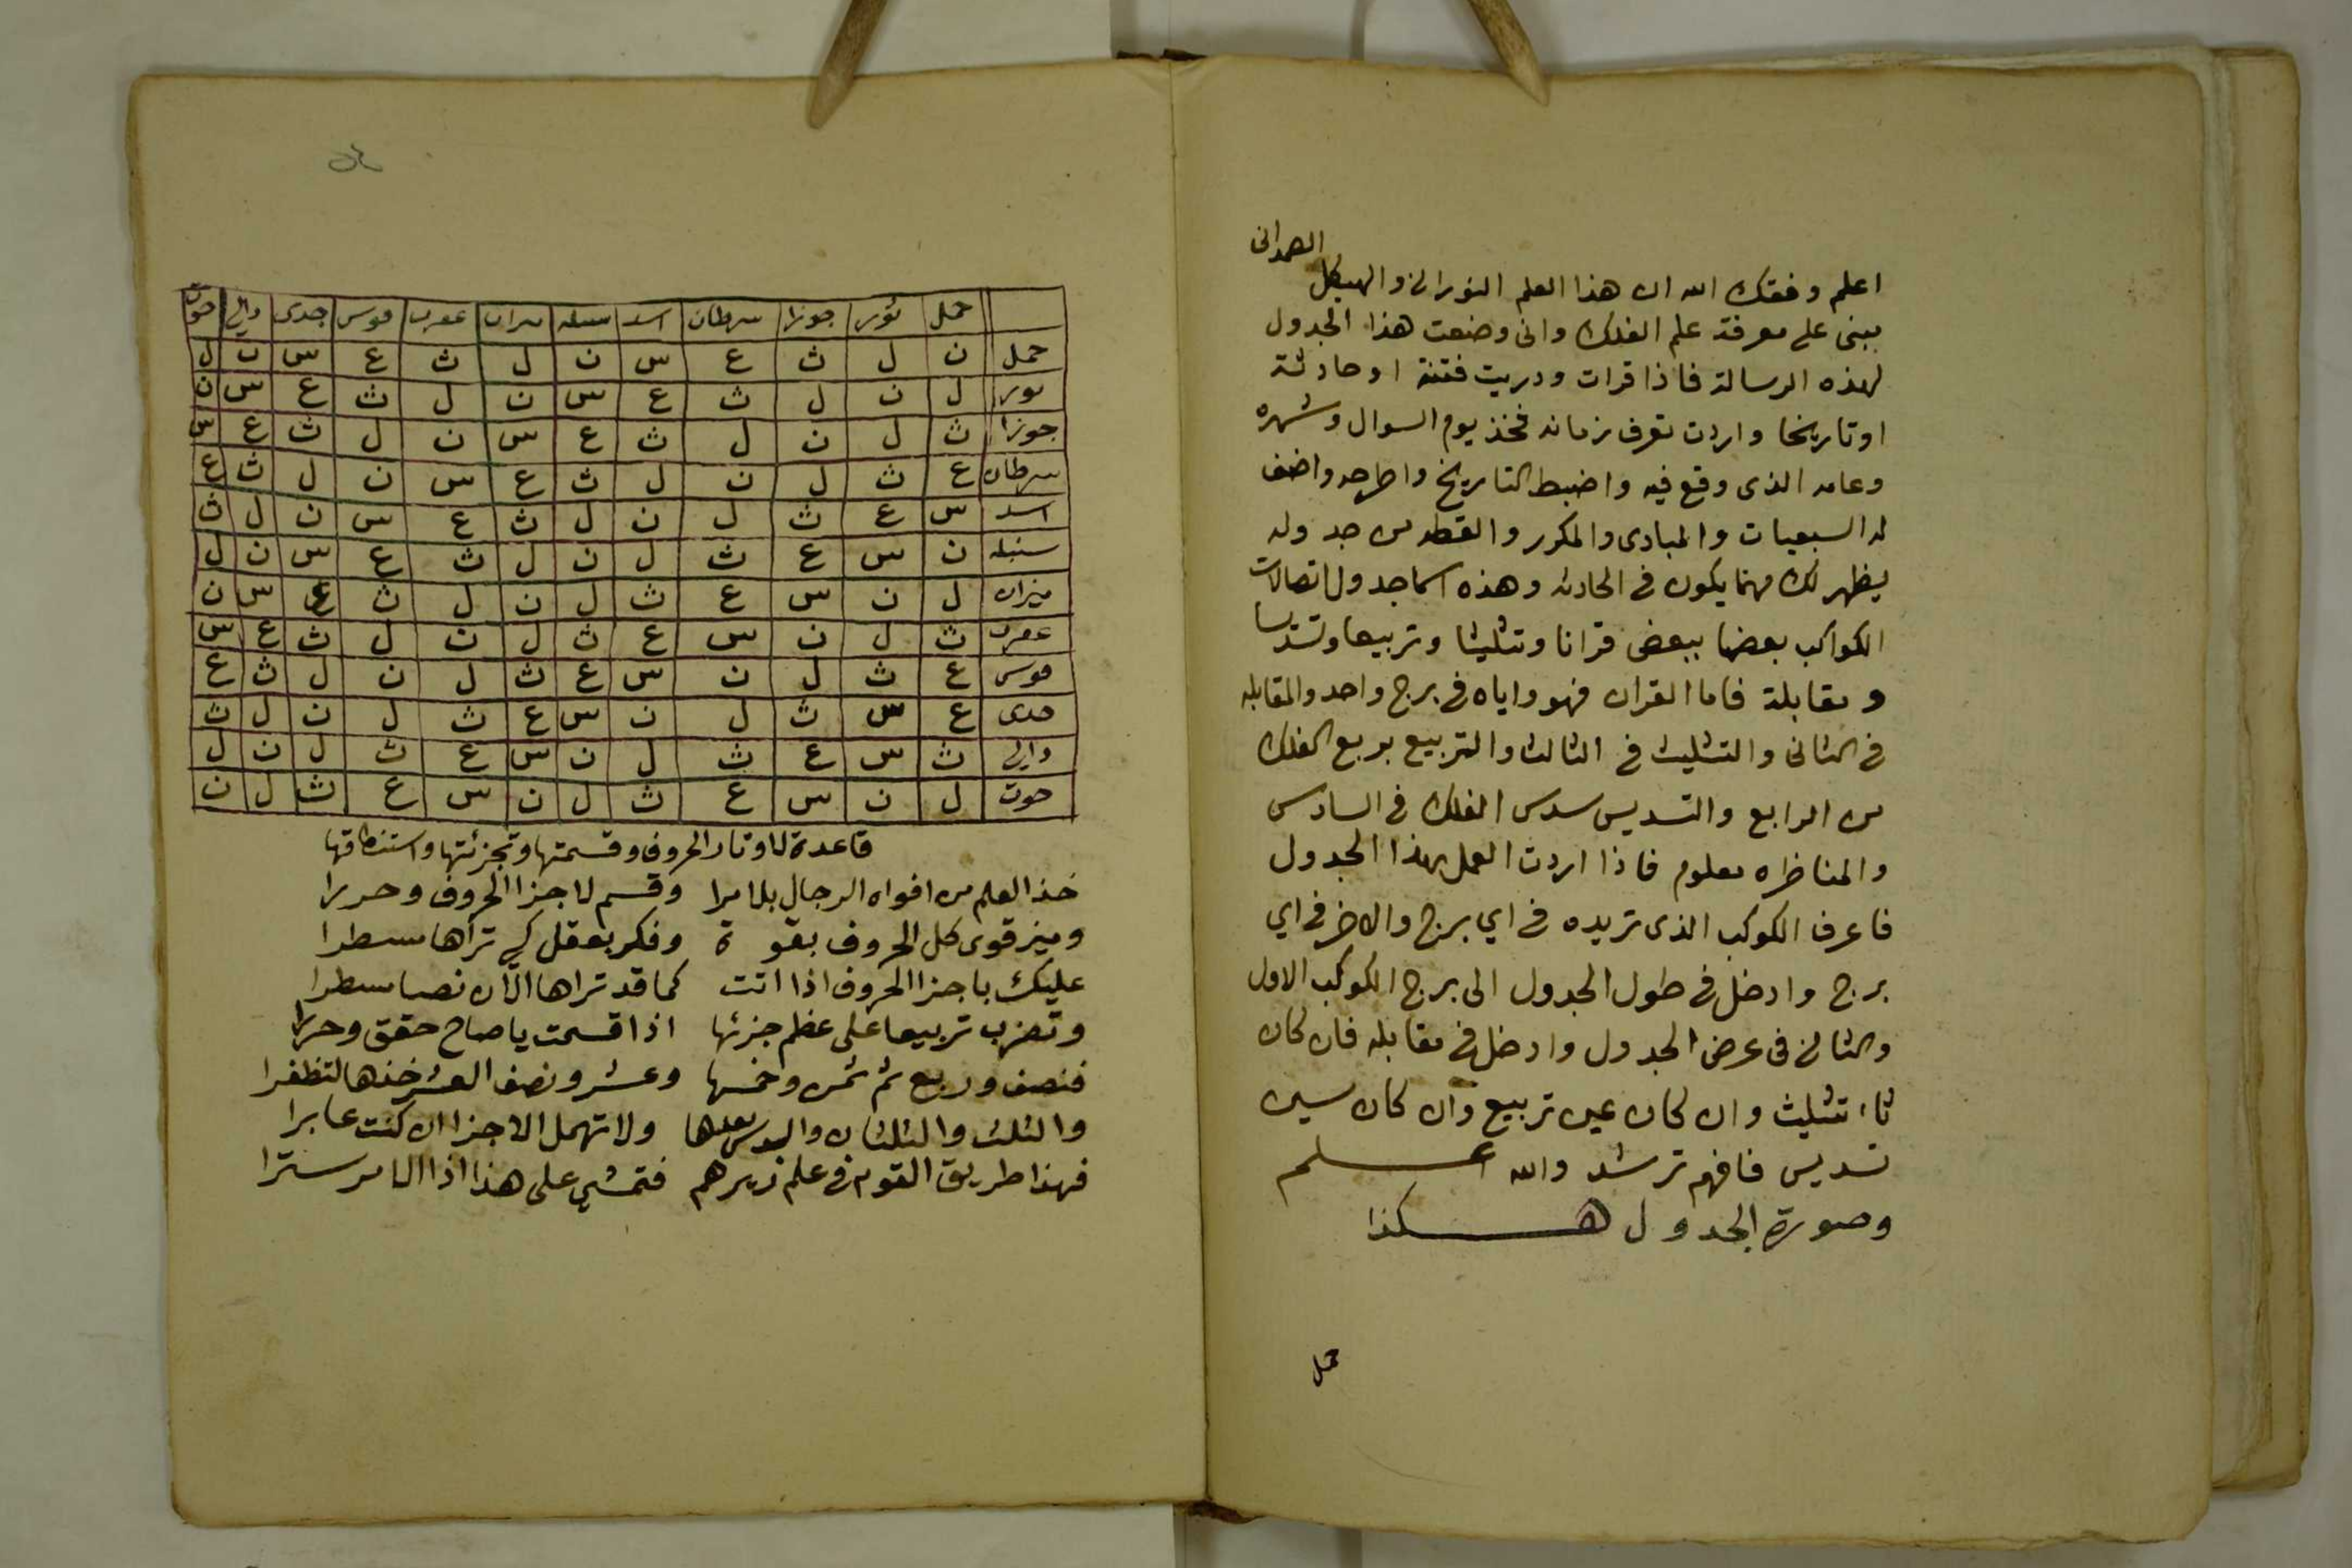 الصمدانى
اعلم وفقك الله ان هذا العلم النورانى والهيكل
يبنى على معرفة علم الفلك وانى وضعت هذا الجدول
لهذه الرسالة فاذا قرات ودريت فتنة او حادثة
او تاريخا واردت تعرف زمانه فخذ يوم السوال وشهره
وعامه الذى وقع فيه واضبط التاريخ واطرحه واضف
له السبعيات والمبادى والمكرر والقطه من جدوله
يظهر لك مهما يكون فى الحادثه وهذه اسما جدول اتصالات
الكواكب بعضها ببعض قرانا وتثليثا وتربيعا وتسديسا
ومقابلة فاما القران فهو واياه فى برج واحد والمقابله
فى الثانى والتثليث فى الثالث والتربيع بربع الفلك
من الرابع والتسديس سدس الفلك فى السادس
والمناظره معلوم فاذا اردت العمل بهذا الجدول
فاعرف الكوكب الذى تريده فى اي برج والاخر فى اي
برج وادخل فى طول الجدول الى برج الكوكب الاول
والثانى فى عرض الجدول وادخل فى مقابله فان كان
ثاء تثليث وان كان عين تربيع وان كان سين
تسديس فافهم ترشد والله اعلم
وصورة الجدول هكذا
حمل
حمل ثور جوزا سرطان اسد سنبله ميزان عقرب قوس جدى دالي حوت
حمل ن ل ث ع س ن ل ث ع س ن ل
ثور ل ن ل ث ع س ن ل ث ع س ن
جوزا ث ل ن ل ث ع س ن ل ث ع س
سرطان ع ث ل ن ل ث ع س ن ل ث ع
اسد س ع ث ل ن ل ث ع س ن ل ث
سنبله ن س ع ث ل ن ل ث ع س ن ل
ميزان ل ن س ع ث ل ن ل ث ع س ن
عقرب ث ل ن س ع ث ل ن ل ث ع س
قوس ع ث ل ن س ع ث ل ن ل ث ع
جدى ع س ث ل ن س ع ث ل ن ل ث
دالي ث س ع ث ل ن س ع ث ل ن ل
حوت ل ن س ع ث ل ن س ع ث ل ن
قاعدة لاوتار الحروف وقسمتها وتجزئتها واستنطاقها
خذ العلم من افواه الرجال بلا مرا وقسم لاجزا الحروف وحررا
وميز قوى كل الحروف بقوة وفكر بعقل كي تراها مسطرا
عليك باجزا الحروف اذا اتت كما قد تراها الآن نصا مسطرا
وتضرب تربيعا على عظم جزئها اذا قسمت يا صاح حقق وحررا
فنصف وربع ثم ثمن وخمسها وعشر ونصف العشر خذها لتظفرا
والثلث والثلثان والسدس بعدها ولا تهمل الاجزا ان كنت عابرا
فهذا طريق القوم فى علم زيرهم فتمشي على هذا اذا الامر سترا